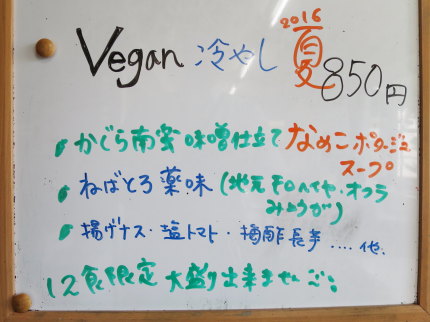 2016
Vegan 冷やし 夏 850円
かぐら南蛮 味噌仕立て なめこポタージュ
スープ
ねばとろ 薬味 (地元 モロヘイヤ・オクラ
みょうが)
揚げナス・塩トマト・梅酢長芋 .... 他.
12食限定 大盛り出来ません